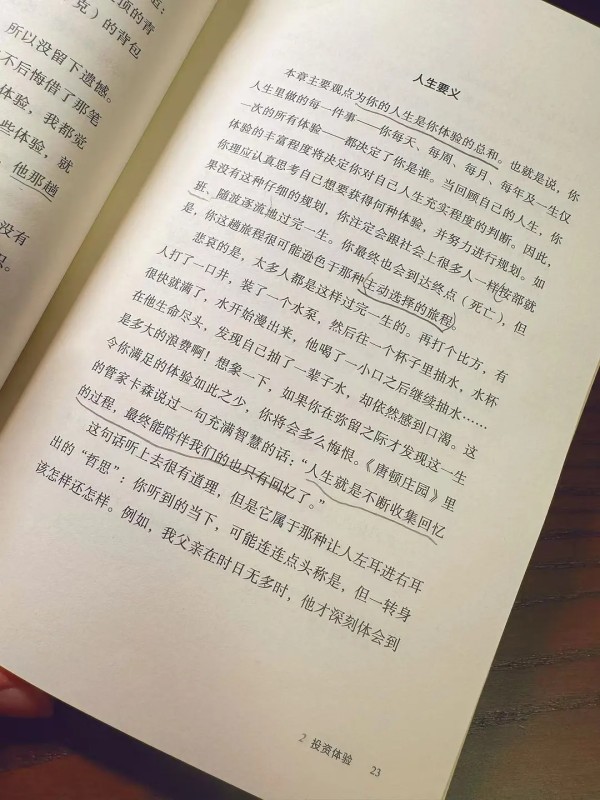 顶的青
克）的背包
所以没留下遗憾。
不后悔借了那笔
体验，我都觉
些体验，就
他那趟
没有
人生要义
本章主要观点为你的人生是你体验的总和。也就是说，你
人生里做的每一件事——你每天、每周、每月、每年及一生仅
一次的所有体验——都决定了你是谁。当回顾自己的人生，你
体验的丰富程度将决定你对自己人生充实程度的判断。因此，
你理应认真思考自己想要获得何种体验，并努力进行规划。如
果没有这种仔细的规划，你注定会跟社会上很多人一样按部就
班、随波逐流地过完一生。你最终也会到达终点（死亡），但
是，你这趟旅程很可能逊色于那种主动选择的旅程。
悲哀的是，太多人都是这样过完一生的。再打个比方，有
人打了一口井，装了一个水泵，然后往一个杯子里抽水，水杯
很快就满了，水开始漫出来，他喝了一小口之后继续抽水……
在他生命尽头，发现自己抽了一辈子水，却依然感到口渴。这
是多大的浪费啊！想象一下，如果你在弥留之际才发现这一生
令你满足的体验如此之少，你将会多么悔恨。《唐顿庄园》里
的管家卡森说过一句充满智慧的话：“人生就是不断收集回忆
的过程，最终能陪伴我们的也只有回忆了。”
这句话听上去很有道理，但是它属于那种让人左耳进右耳
出的“哲思”：你听到的当下，可能连连点头称是，但一转身
该怎样还怎样。例如，我父亲在时日无多时，他才深刻体会到
2 投资体验 23